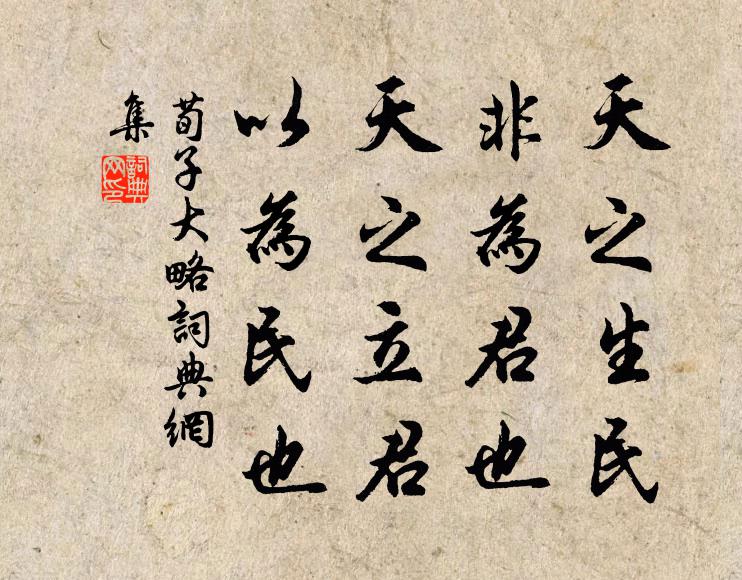 天之生民
非為君也
天之立君
以為民也
荀子大略詞典網
集
詞典
网印